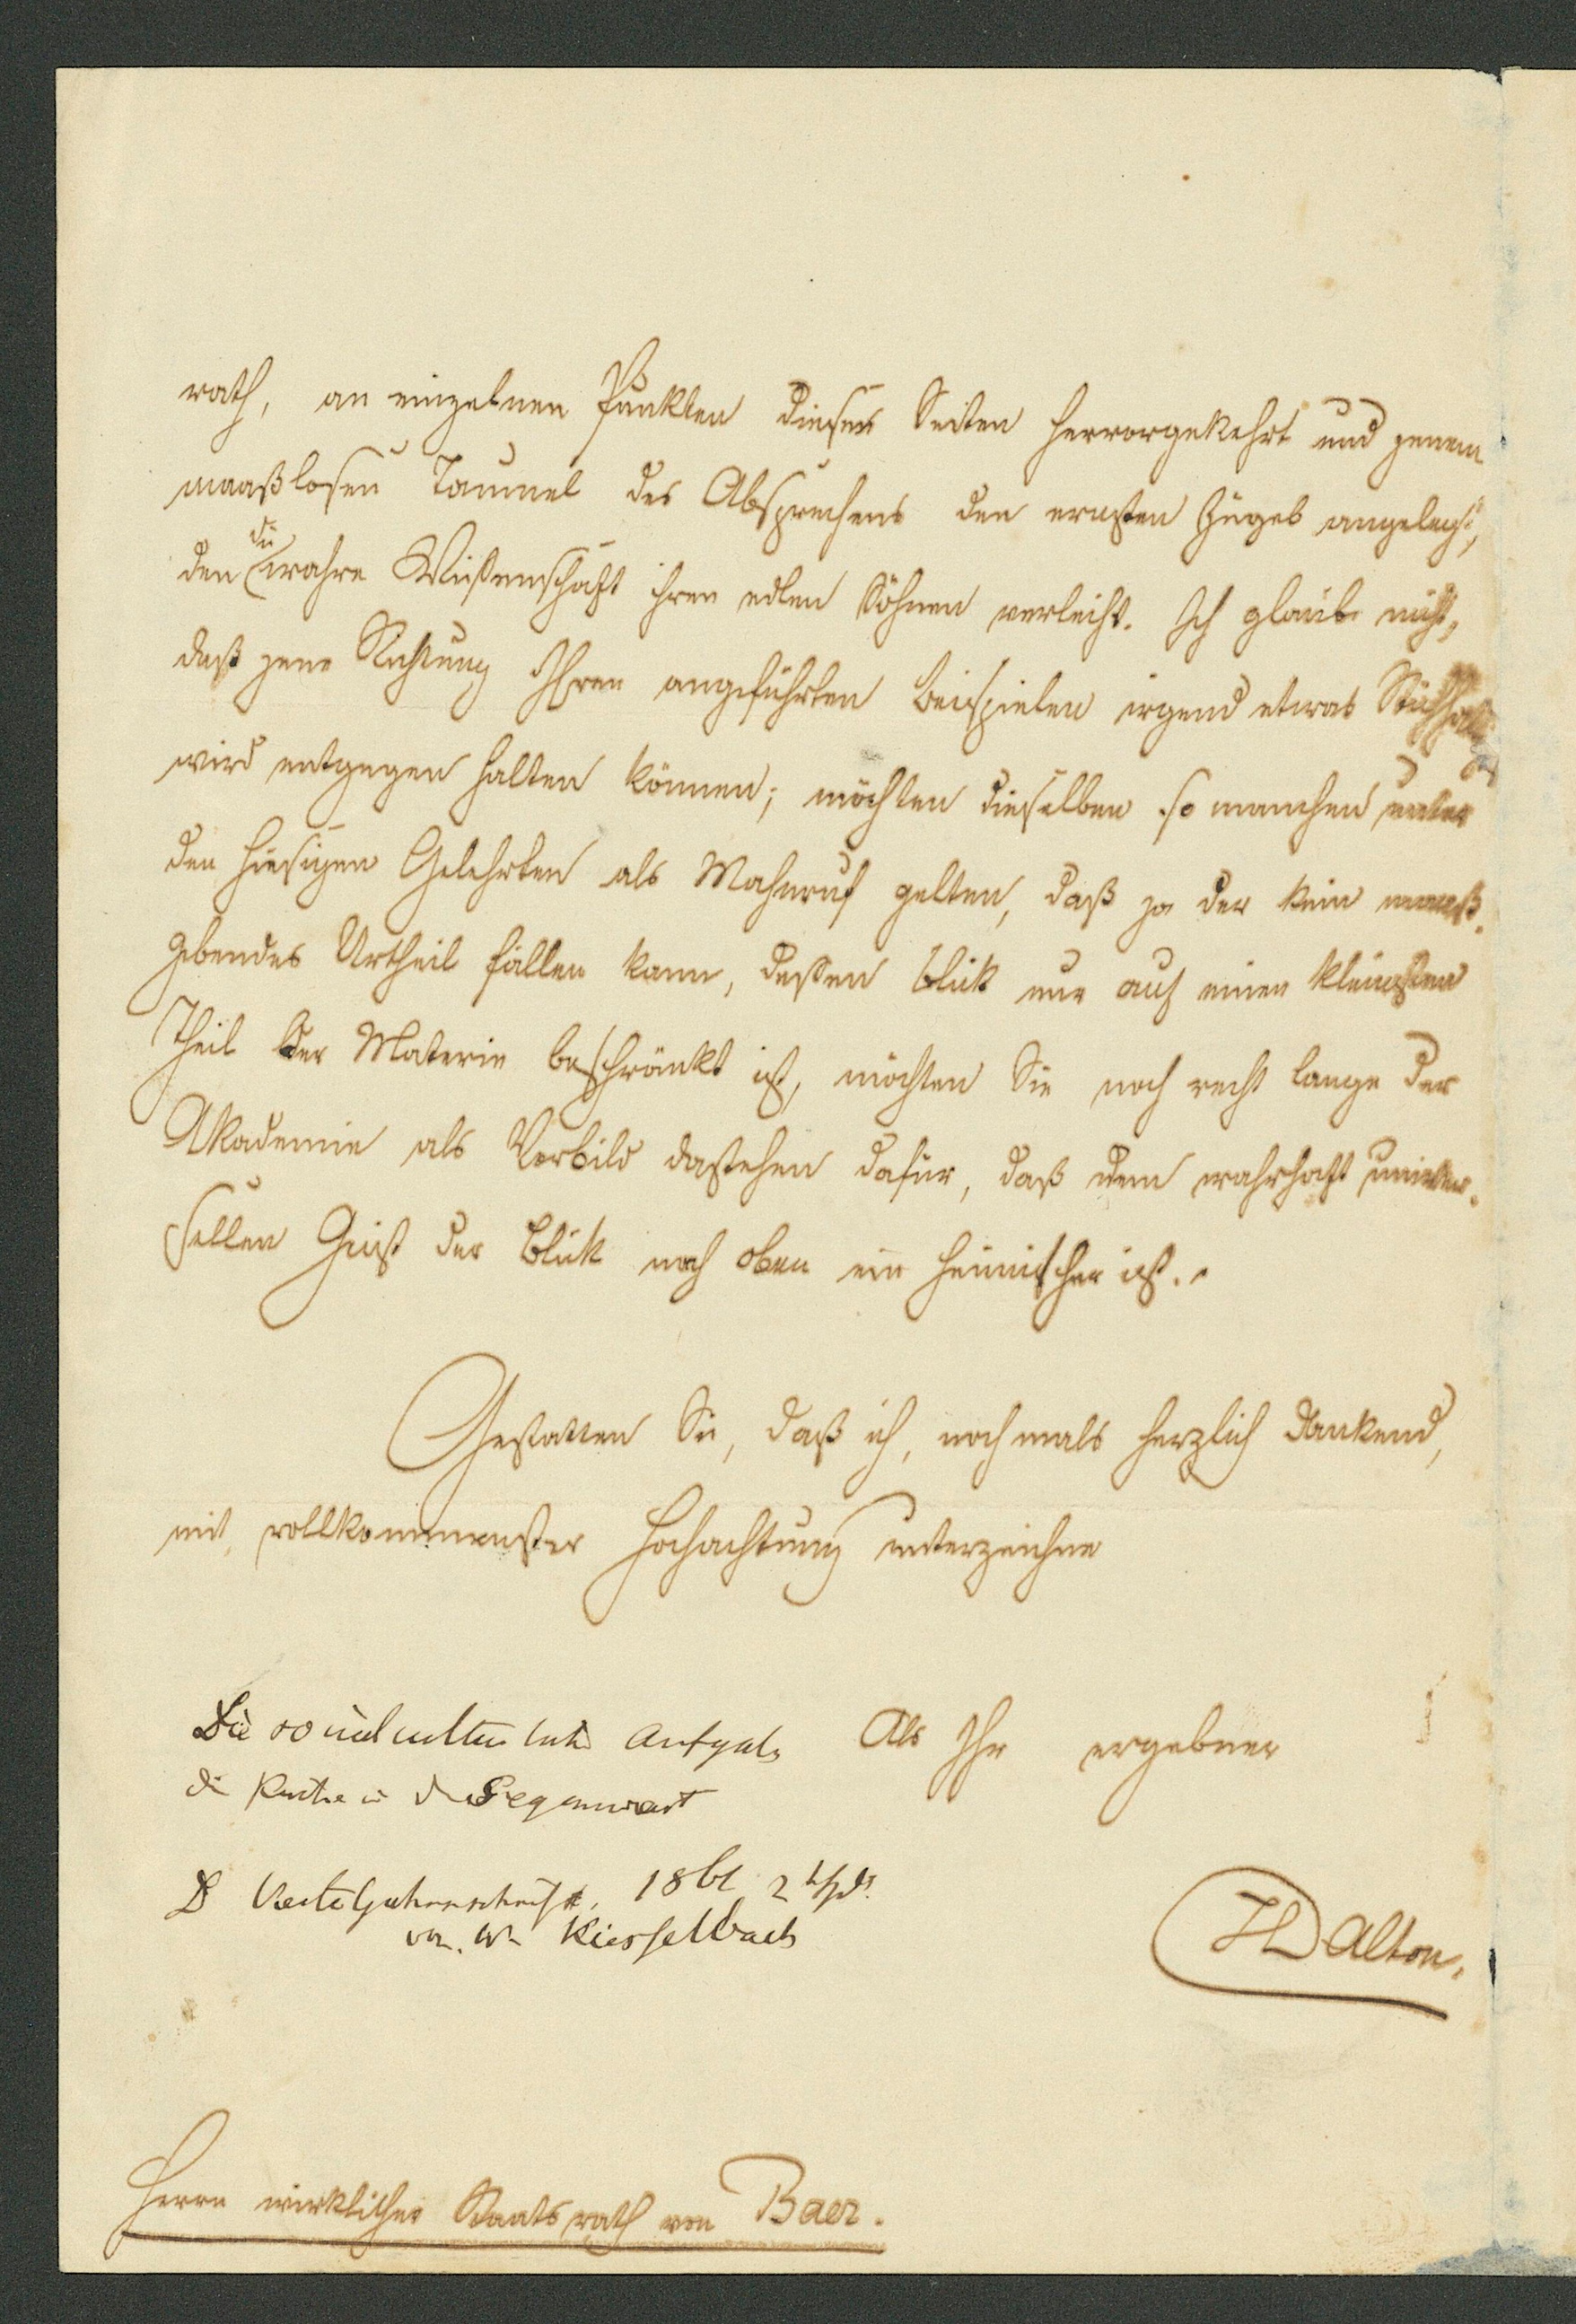 rath, an einzelnen Punkten dieser Seiten hervorgekehrt und jenem
maaßlosen Taumel des Absprechens den ernsten Zügel angelegt,
den die wahre Wissenschaft ihren edlen Söhnen verleiht. Ich glaube nicht,
daß jene Richtung Ihren angeführten Beispielen irgend etwas Stichhaltiges
wird entgegen halten können; möchten dieselben so manchen unter
den hiesigen Gelehrten als Mahnruf gelten, daß ja der kein maaß-
gebendes Urtheil fällen kann, dessen Blick nur auf einen kleinsten
Theil der Materie beschränkt ist, möchten Sie noch recht lange der
Akademie als Vorbild dastehen dafür, daß dem wahrhaft univer-
sellen Geist der Blick nach oben ein heimischer ist. -
Gestatten Sie, daß ich, nochmals herzlich dankend,
mit vollkommenster Hochachtung unterzeichne
Als Ihr ergebner
HDalton.
Die Aufgabe
die Kirche in der Gegenwart
D Vierteljahrsschrift, 1861 2
von W Kiesselbach
Herrn wirklicher Staatsrath von Baer.